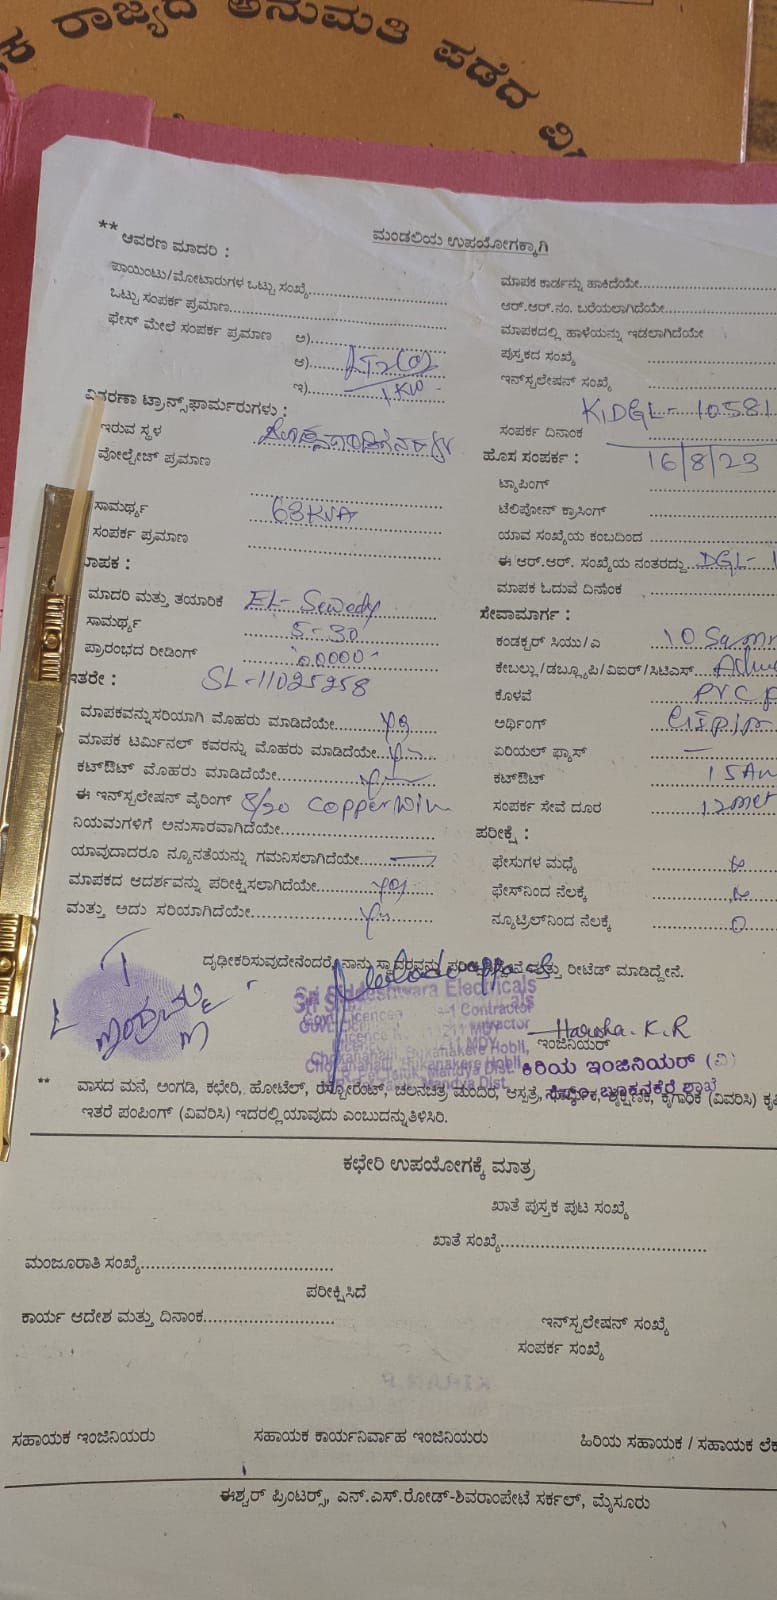 ರಾಜ್ಯದ ಅನುಮತಿ ಪಡೆದ
ಮಂಡಲಿಯ ಉಪಯೋಗಕ್ಕಾಗಿ
** ಆವರಣ ಮಾದರಿ :
ಪಾಯಿಂಟು/ಮೋಟಾರುಗಳ ಒಟ್ಟು ಸಂಖ್ಯೆ
ಒಟ್ಟು ಸಂಪರ್ಕ ಪ್ರಮಾಣ
ಫೇಸ್ ಮೇಲೆ ಸಂಪರ್ಕ ಪ್ರಮಾಣ ಅ)
ಆ)
ಇ) 1 KW
ವಿತರಣಾ ಟ್ರಾನ್ಸ್‌ಫಾರ್ಮರುಗಳು :
ಇರುವ ಸ್ಥಳ
ವೋಲ್ಟೇಜ್ ಪ್ರಮಾಣ
ಸಾಮರ್ಥ್ಯ 63KVA
ಸಂಪರ್ಕ ಪ್ರಮಾಣ
ಮಾದರಿ ಮತ್ತು ತಯಾರಿಕೆ EL-Sewedy
ಸಾಮರ್ಥ್ಯ 5-30
ಪ್ರಾರಂಭದ ರೀಡಿಂಗ್ 00000
ಇತರೇ : SL-11025258
ಮಾಪಕವನ್ನು ಸರಿಯಾಗಿ ಮೊಹರು ಮಾಡಿದೆಯೇ
ಮಾಪಕ ಟರ್ಮಿನಲ್ ಕವರನ್ನು ಮೊಹರು ಮಾಡಿದೆಯೇ
ಕಟ್‌ಔಟ್ ಮೊಹರು ಮಾಡಿದೆಯೇ
ಈ ಇನ್‌ಸ್ಟಲೇಷನ್ ವೈರಿಂಗ್ 8/20 copper
ನಿಯಮಗಳಿಗೆ ಅನುಸಾರವಾಗಿದೆಯೇ
ಯಾವುದಾದರೂ ನ್ಯೂನತೆಯನ್ನು ಗಮನಿಸಲಾಗಿದೆಯೇ
ಮಾಪಕದ ಆದರ್ಶವನ್ನು ಪರೀಕ್ಷಿಸಲಾಗಿದೆಯೇ
ಮತ್ತು ಅದು ಸರಿಯಾಗಿದೆಯೇ
ಮಾಪಕ ಕಾರ್ಡನ್ನು ಹಾಕಿದೆಯೇ
ಆರ್.ಆರ್.ನಂ. ಬರೆಯಲಾಗಿದೆಯೇ
ಮಾಪಕದಲ್ಲಿ ಹಾಳೆಯನ್ನು ಇಡಲಾಗಿದೆಯೇ
ಪುಸ್ತಕದ ಸಂಖ್ಯೆ
ಇನ್‌ಸ್ಟಲೇಷನ್ ಸಂಖ್ಯೆ
KDGL-10581
ಸಂಪರ್ಕ ದಿನಾಂಕ
ಹೊಸ ಸಂಪರ್ಕ : 16/8/23
ಟ್ಯಾಪಿಂಗ್
ಟೆಲಿಪೋನ್ ಕ್ರಾಸಿಂಗ್
ಯಾವ ಸಂಖ್ಯೆಯ ಕಂಬದಿಂದ
ಈ ಆರ್.ಆರ್. ಸಂಖ್ಯೆಯ ನಂತರದ್ದು DGL-1
ಮಾಪಕ ಓದುವ ದಿನಾಂಕ
ಸೇವಾಮಾರ್ಗ :
ಕಂಡಕ್ಟರ್ ಸಿಯು/ಎ
ಕೇಬಲ್ಲು/ಡಬ್ಲ್ಯೂಪಿ/ವಿಐರ್/ಸಿಟಿಎಸ್
ಕೊಳವೆ PVC
ಅರ್ಥಿಂಗ್
ಏರಿಯಲ್ ಫ್ಯೂಸ್
ಕಟ್‌ಔಟ್
ಸಂಪರ್ಕ ಸೇವೆ ದೂರ
ಪರೀಕ್ಷೆ :
ಫೇಸುಗಳ ಮಧ್ಯೆ
ಫೇಸ್‌ನಿಂದ ನೆಲಕ್ಕೆ
ನ್ಯೂಟ್ರಿಲ್‌ನಿಂದ ನೆಲಕ್ಕೆ
ದೃಢೀಕರಿಸುವುದೇನೆಂದರೆ, ನಾನು ಮತ್ತು ರೀಟೆಡ್ ಮಾಡಿದ್ದೇನೆ.
Siddeshwara Electricals
Contractor
Harsha. K.R
ಇಂಜಿನಿಯರ್
ಕಿರಿಯ ಇಂಜಿನಿಯರ್ (ವಿ)
** ವಾಸದ ಮನೆ, ಅಂಗಡಿ, ಕಛೇರಿ, ಹೋಟೆಲ್, ರೆಸ್ಟೋರೆಂಟ್, ಚಲನಚಿತ್ರ ಮಂದಿರ, ಆಸ್ಪತ್ರೆ, ಕೈಗಾರಿಕೆ (ವಿವರಿಸಿ)
ಇತರೆ ಪಂಪಿಂಗ್ (ವಿವರಿಸಿ) ಇದರಲ್ಲಿ ಯಾವುದು ಎಂಬುದನ್ನು ತಿಳಿಸಿರಿ.
ಕಛೇರಿ ಉಪಯೋಗಕ್ಕೆ ಮಾತ್ರ
ಖಾತೆ ಪುಸ್ತಕ ಪುಟ ಸಂಖ್ಯೆ
ಖಾತೆ ಸಂಖ್ಯೆ
ಮಂಜೂರಾತಿ ಸಂಖ್ಯೆ
ಪರೀಕ್ಷಿಸಿದೆ
ಕಾರ್ಯ ಆದೇಶ ಮತ್ತು ದಿನಾಂಕ
ಇನ್‌ಸ್ಟಲೇಷನ್ ಸಂಖ್ಯೆ
ಸಂಪರ್ಕ ಸಂಖ್ಯೆ
ಸಹಾಯಕ ಇಂಜಿನಿಯರು ಸಹಾಯಕ ಕಾರ್ಯನಿರ್ವಾಹ ಇಂಜಿನಿಯರು ಹಿರಿಯ ಸಹಾಯಕ / ಸಹಾಯಕ
ಈಶ್ವರ್ ಪ್ರಿಂಟರ್ಸ್, ಎನ್.ಎಸ್.ರೋಡ್-ಶಿವರಾಂಪೇಟೆ ಸರ್ಕಲ್, ಮೈಸೂರು